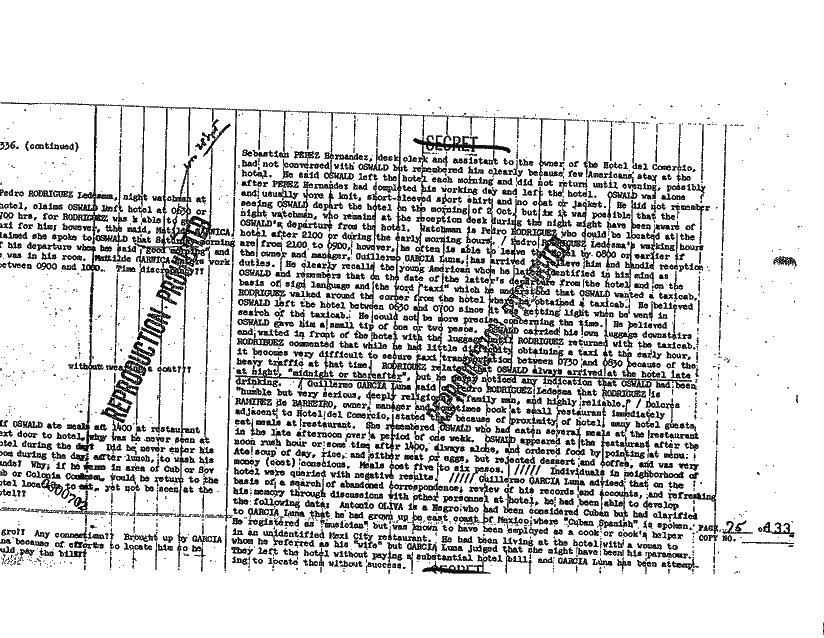 336. (continued)
SECRET
Pedro RODRIGUEZ Ledesma, night watchman at
hotel, claims OSWALD left hotel at 0630 or
700 hrs, for RODRIGUEZ was able to
taxi for him; however, the maid, Matilde GARNICA,
claimed she spoke to OSWALD that morning
his departure when he said "good
was in his room. Matilde GARNICA work
between 0900 and 1000. Time
without coat???
If OSWALD ate meals at 1400 at restaurant
next door to hotel, why was he never seen at
hotel during the day? Did he never enter his
room during the day after lunch, to wash his
hands? Why, if he in area of Cub or Sov
would he return to the
hotel to eat, yet not be seen at the
hotel??
Any connection?? Brought up by GARCIA
because of efforts to locate him so he
could pay the bill??
REPRODUCTION
Sebastian PEREZ Hernandez, desk clerk and assistant to the owner of the Hotel del Comercio,
had not conversed with OSWALD but remembered him clearly because few Americans stay at the
hotel. He said OSWALD left the hotel each morning and did not return until evening, possibly
after PEREZ Hernandez had completed his working day and left the hotel. OSWALD was alone
and usually wore a knit, short-sleeved sport shirt and no coat or jacket. He did not remember
seeing OSWALD depart the hotel on the morning of 2 Oct, but it was possible that the
night watchman, who remains at the reception desk during the night might have been aware of
OSWALD's departure from the hotel. Watchman is Pedro RODRIGUEZ who could be located at the
hotel after 2100 or during the early morning hours. / Pedro RODRIGUEZ Ledesma's working hours
are from 2100 to 0900, however, he often is able to leave the hotel by 0800 or earlier if
the owner and manager, Guillermo GARCIA Luna, has arrived to relieve him and handle reception
duties. He clearly recalls the young American whom he later identified in his mind as
OSWALD and remembers that on the date of the latter's departure from the hotel and on the
basis of sign language and the word "taxi" which he understood that OSWALD wanted a taxicab,
RODRIGUEZ walked around the corner from the hotel where he obtained a taxicab. He believed
OSWALD left the hotel between 0630 and 0700 since it was getting light when he went in
search of the taxicab. He could not be more precise concerning the time. He believed
OSWALD gave him a small tip of one or two pesos. OSWALD carried his own luggage downstairs
and waited in front of the hotel with the luggage until RODRIGUEZ returned with the taxicab.
RODRIGUEZ commented that while he had little difficulty obtaining a taxi at the early hour,
it becomes very difficult to secure taxi transportation between 0730 and 0830 because of the
heavy traffic at that time. RODRIGUEZ related that OSWALD always arrived at the hotel late
at night, "midnight or thereafter", but he never noticed any indication that OSWALD had been
drinking. / Guillermo GARCIA Luna said of Pedro RODRIGUEZ Ledesma that RODRIGUEZ is
"humble but very serious, deeply religious, family man, and highly reliable." / Dolores
RAMIREZ de BARREIRO, owner, manager and sometimes cook at small restaurant immediately
adjacent to Hotel del Comercio, stated that because of proximity of hotel, many hotel guests
eat meals at restaurant. She remembered OSWALD who had eaten several meals at the restaurant
in the late afternoon over a period of one week. OSWALD appeared at the restaurant after the
noon rush hour or some time after 1400, always alone, and ordered food by pointing at menu;
Ate soup of day, rice, and either meat or eggs, but rejected dessert and coffee, and was very
money (cost) conscious. Meals cost five to six pesos. ///// Individuals in neighborhood of
hotel were queried with negative results. ///// Guillermo GARCIA Luna advised that on the
basis of a search of abandoned correspondence, review of his records and accounts, and refreshing
his memory through discussions with other personnel at hotel, he had been able to develop
the following data; Antonio OLIVA is a Negro who had been considered Cuban but had clarified
to GARCIA Luna that he had grown up on east coast of Mexico where "Cuban Spanish" is spoken.
He registered as "musician" but was known to have been employed as a cook or cook's helper
in an unidentified Mexi City restaurant. He had been living at the hotel with a woman to
whom he referred as his "wife" but GARCIA Luna judged that she might have been his paramour.
They left the hotel without paying a substantial hotel bill, and GARCIA Luna has been attempt-
ing to locate them without success.
PAGE 75 of 133
COPY NO.
SECRET